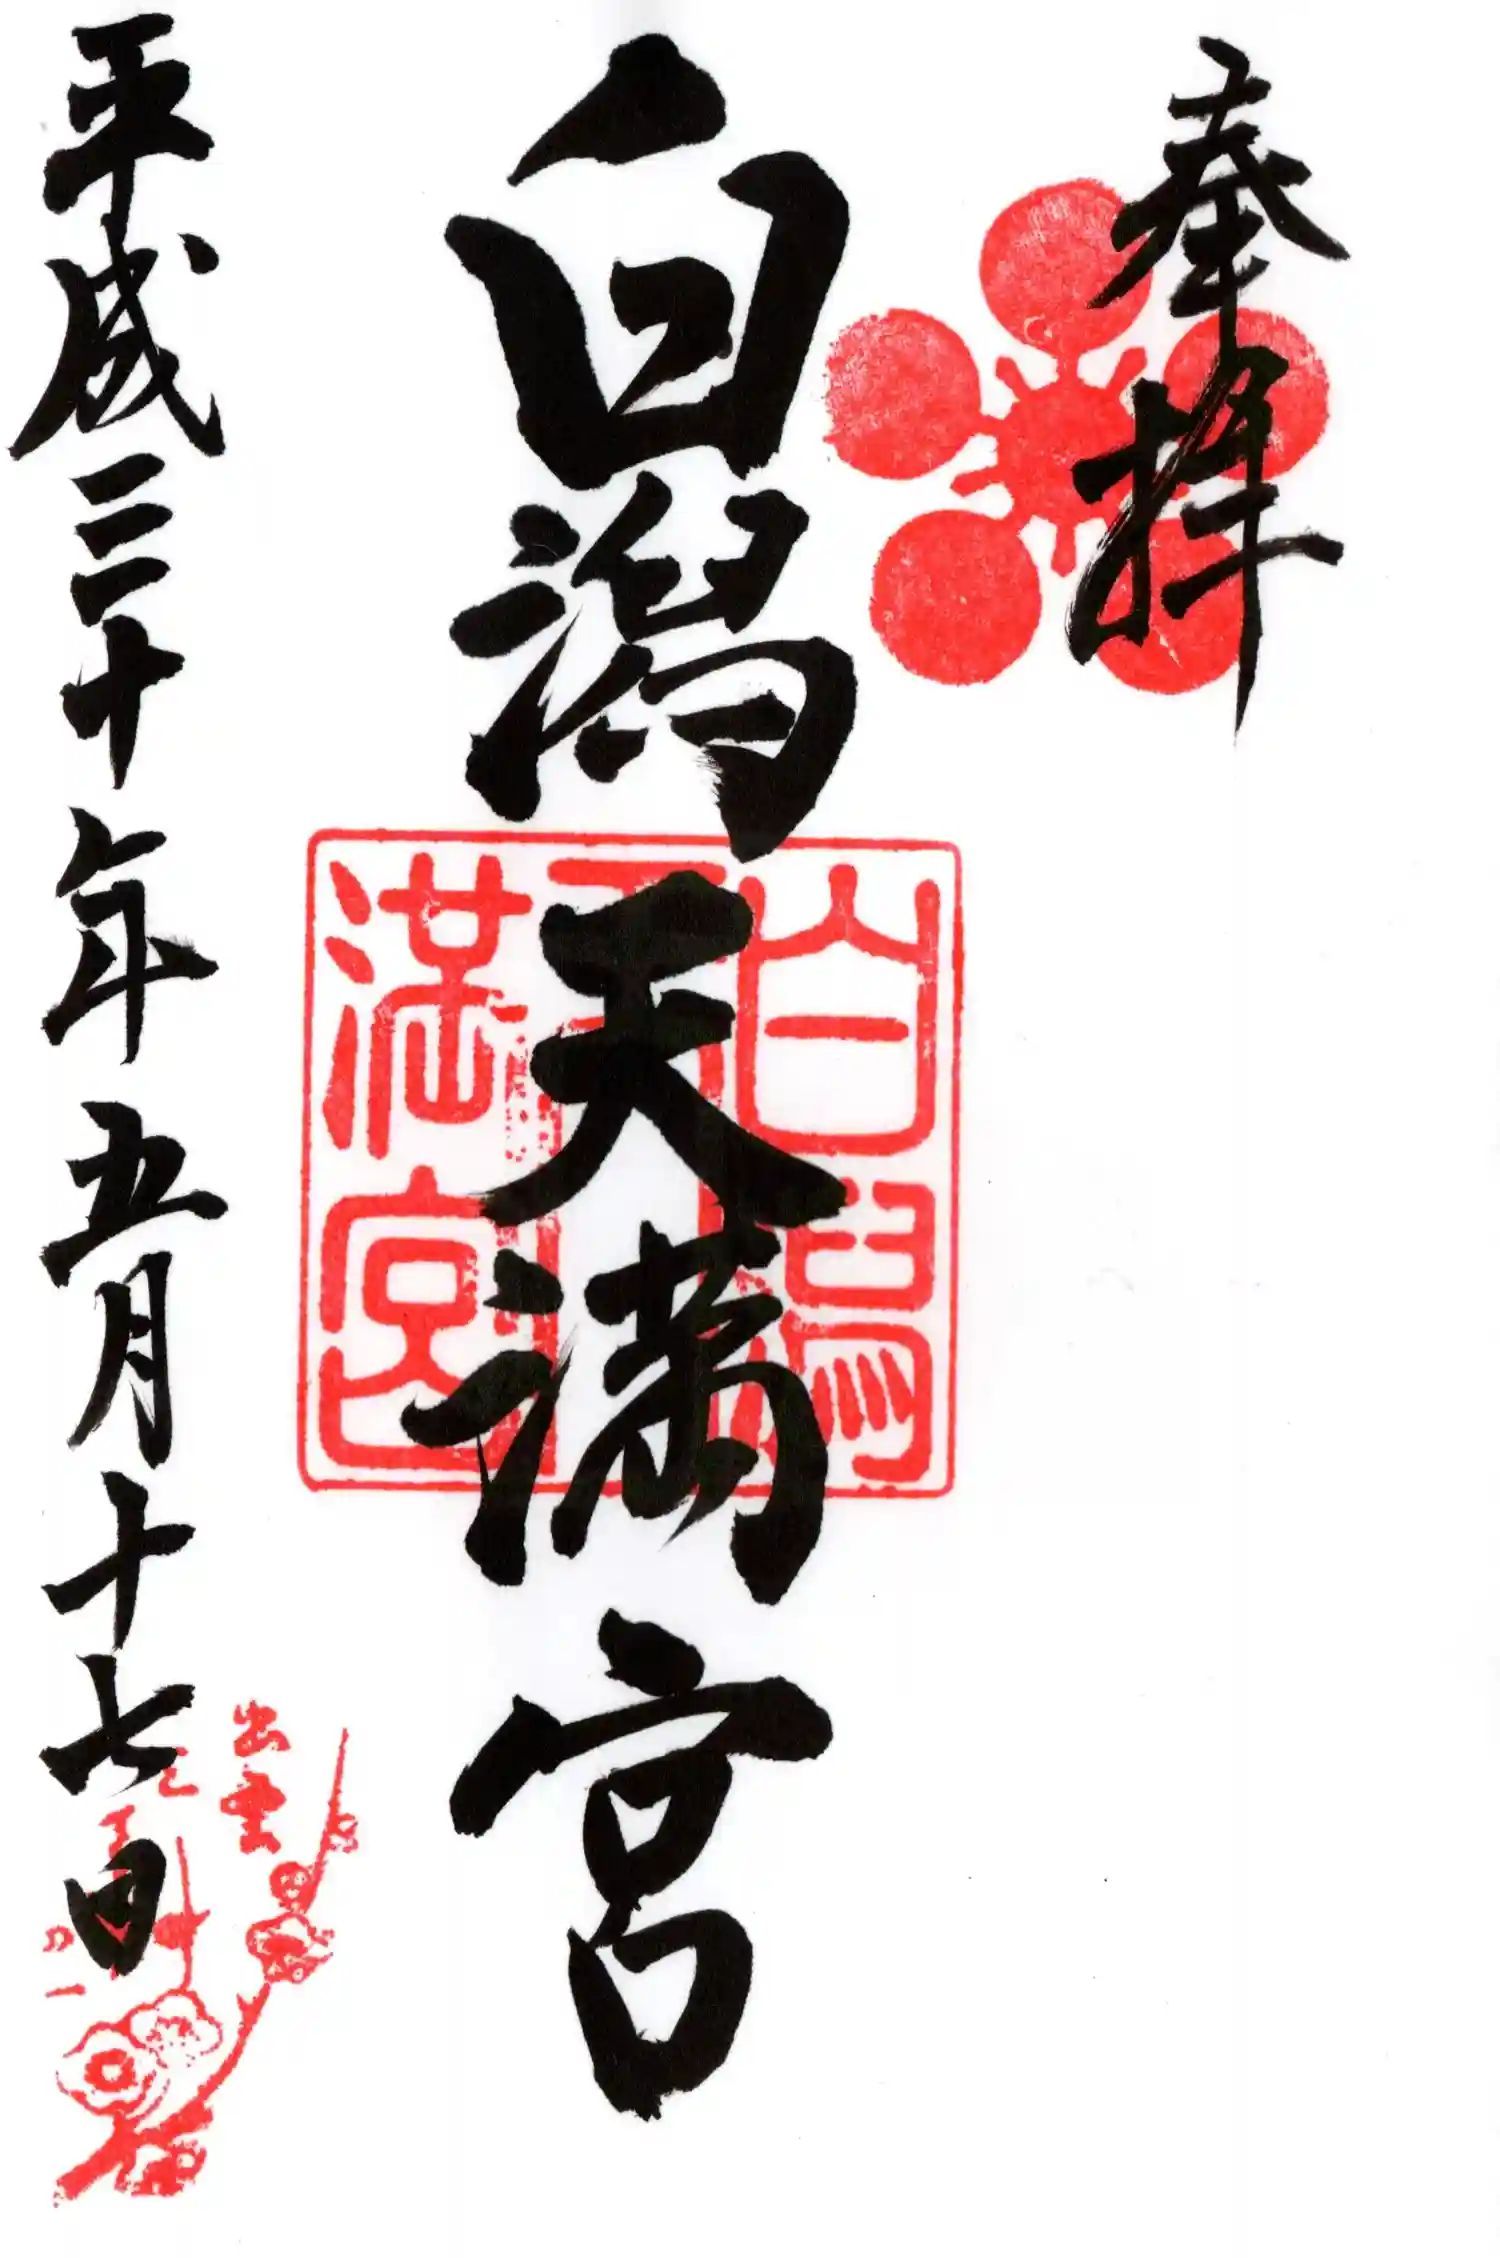 奉拝
白潟天満宮
白潟
天
満宮
平成三十年五月十七日
出雲